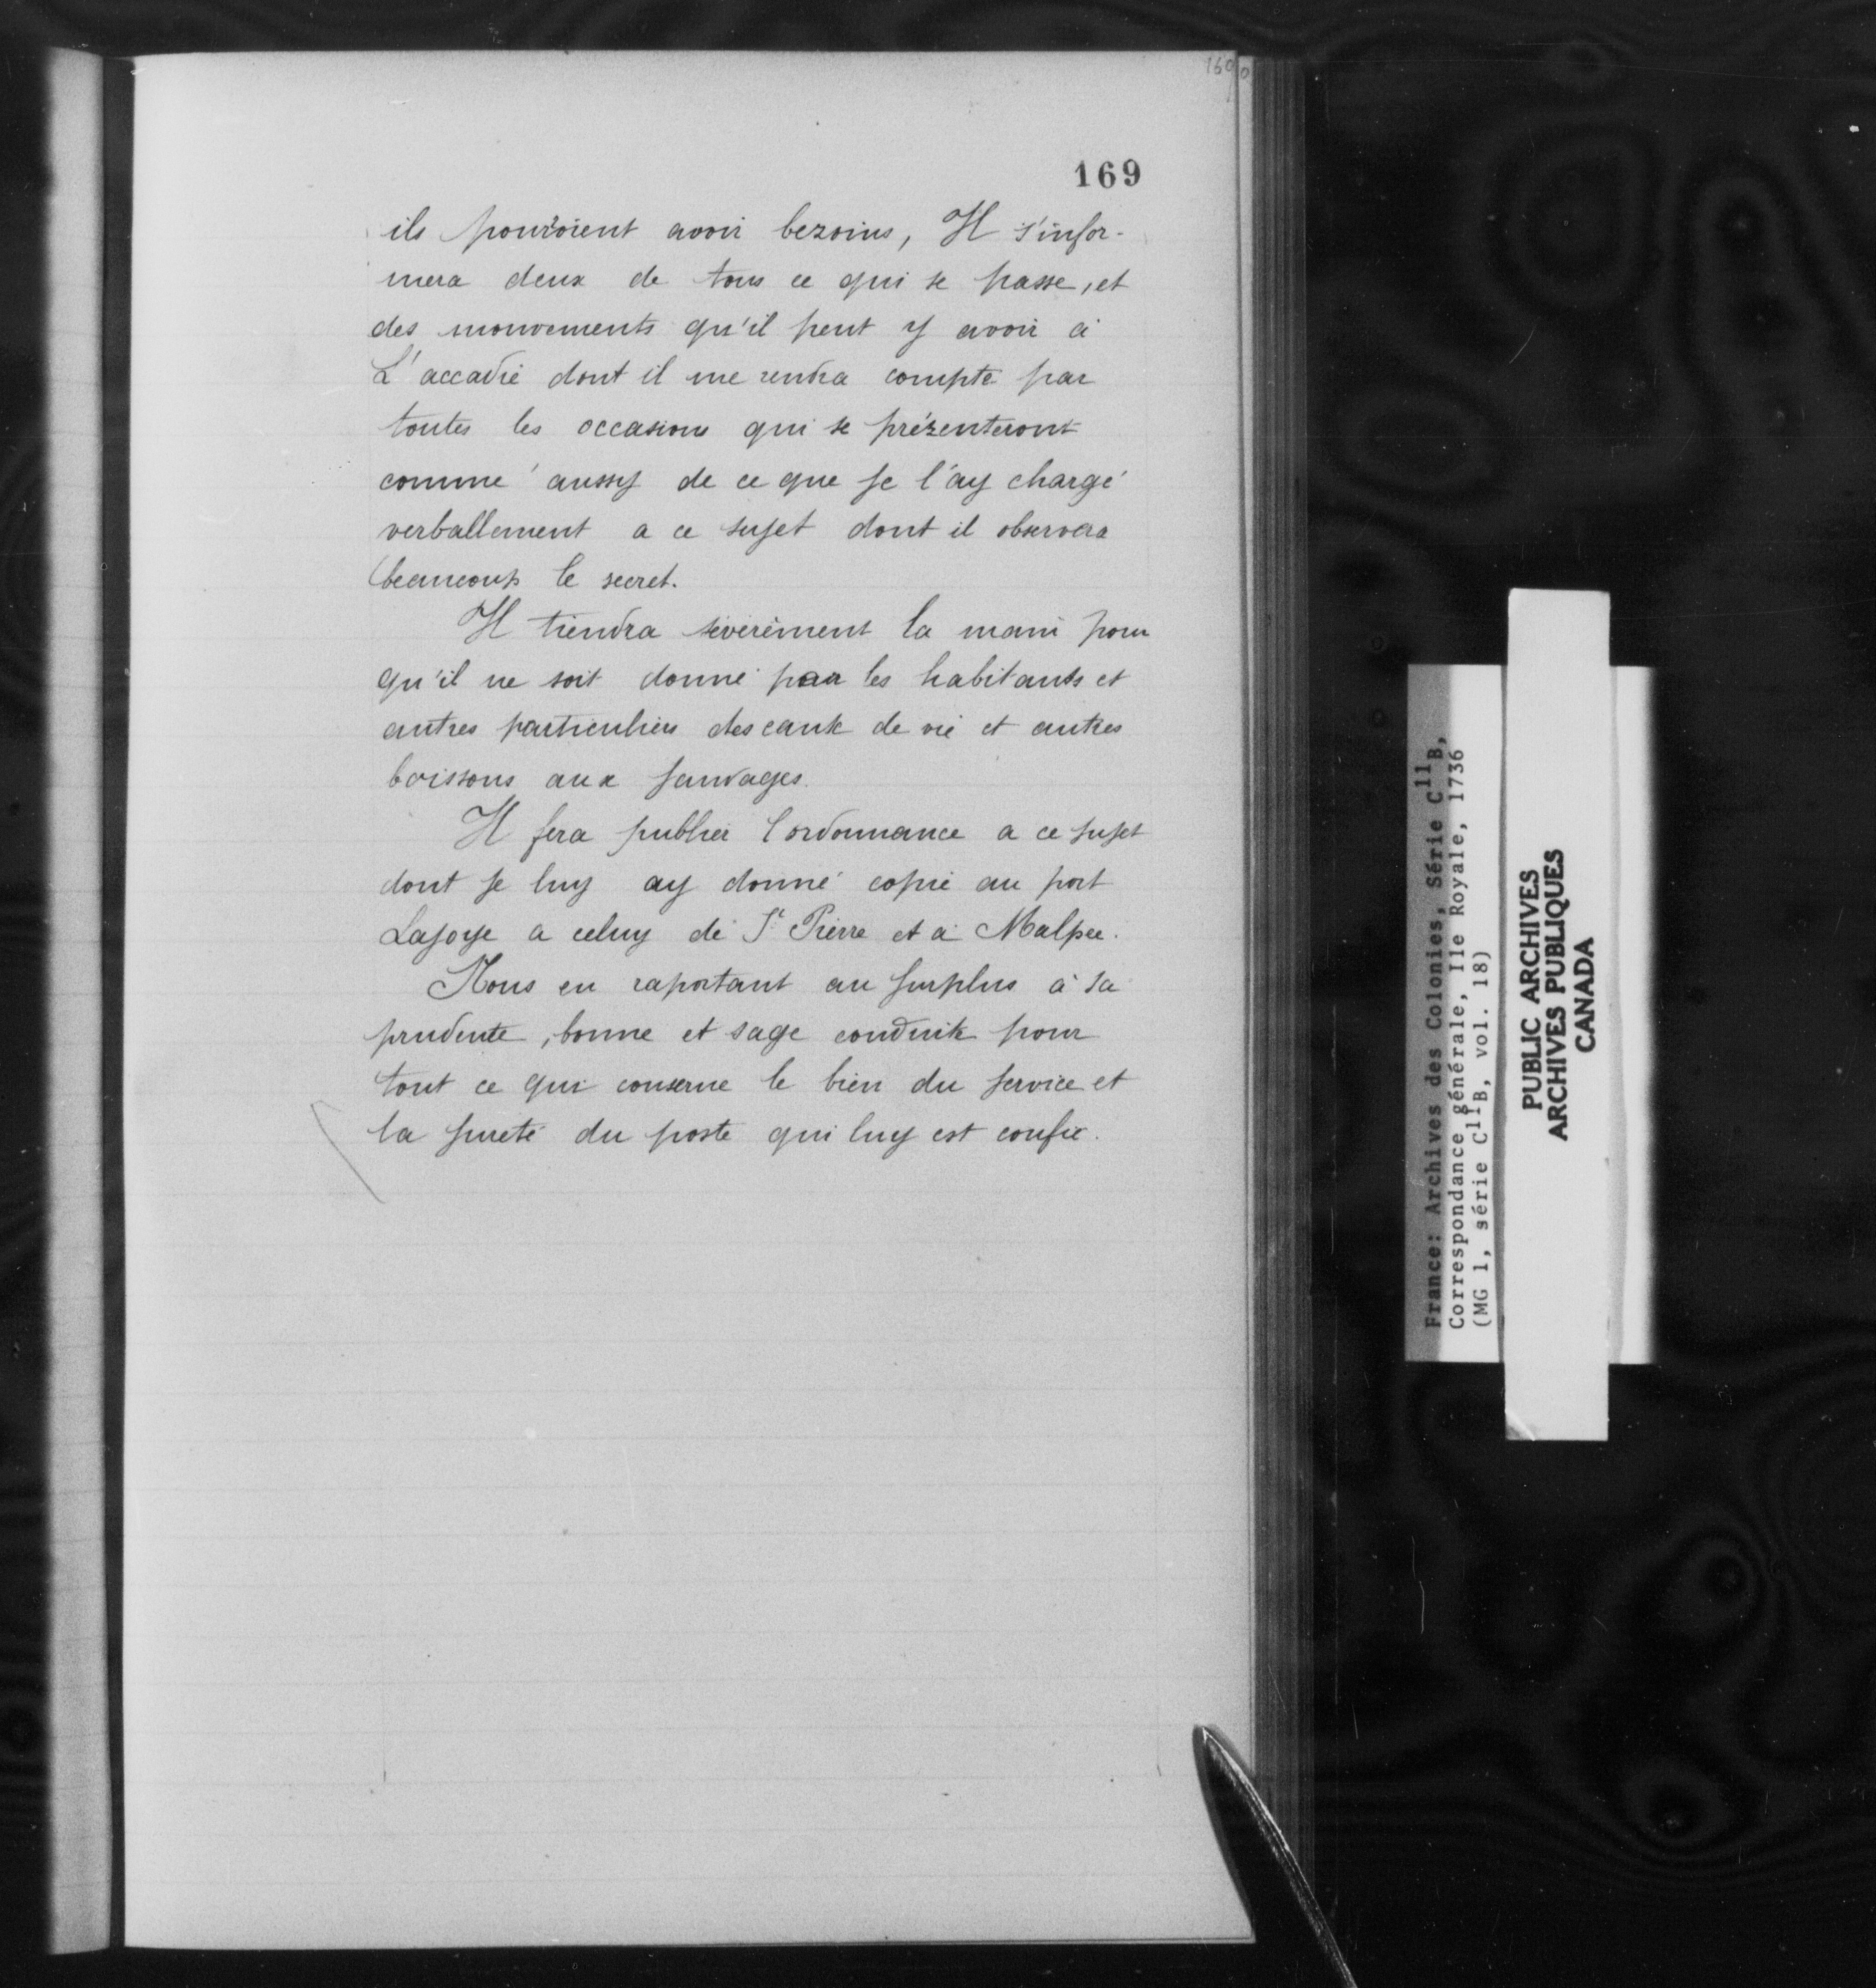 169
ils pouroient avoir bezoins, Il s'infor-
mera deux de tous ce qui se passe, et
des mouvements qu'il peut y avoir à
L'accadie dont il me rendra compte par
toutes les occasions qui se prézenteront
comme aussy de ce que je l'ay chargé
verballement a ce sujet dont il observera
beaucoup le secret.
Il tiendra sévèrement la main pour
qu'il ne soit donné par les habitants et
autres particuliers des eaux de vie et autres
boissons aux sauvages.
Il fera publier l'ordonnance a ce sujet
dont je luy ay donné copie au port
Lajoye a celuy de St Pierre et à Malpec.
Nous en raportant au surplus à sa
prudente, bonne et sage conduite pour
tout ce qui conserne le bien du service et
la sureté du poste qui luy est confié.
France: Archives des Colonies, Série C11B,
Correspondance générale, Ile Royale, 1736
(MG 1, série C11B, vol. 18)
PUBLIC ARCHIVES
ARCHIVES PUBLIQUES
CANADA